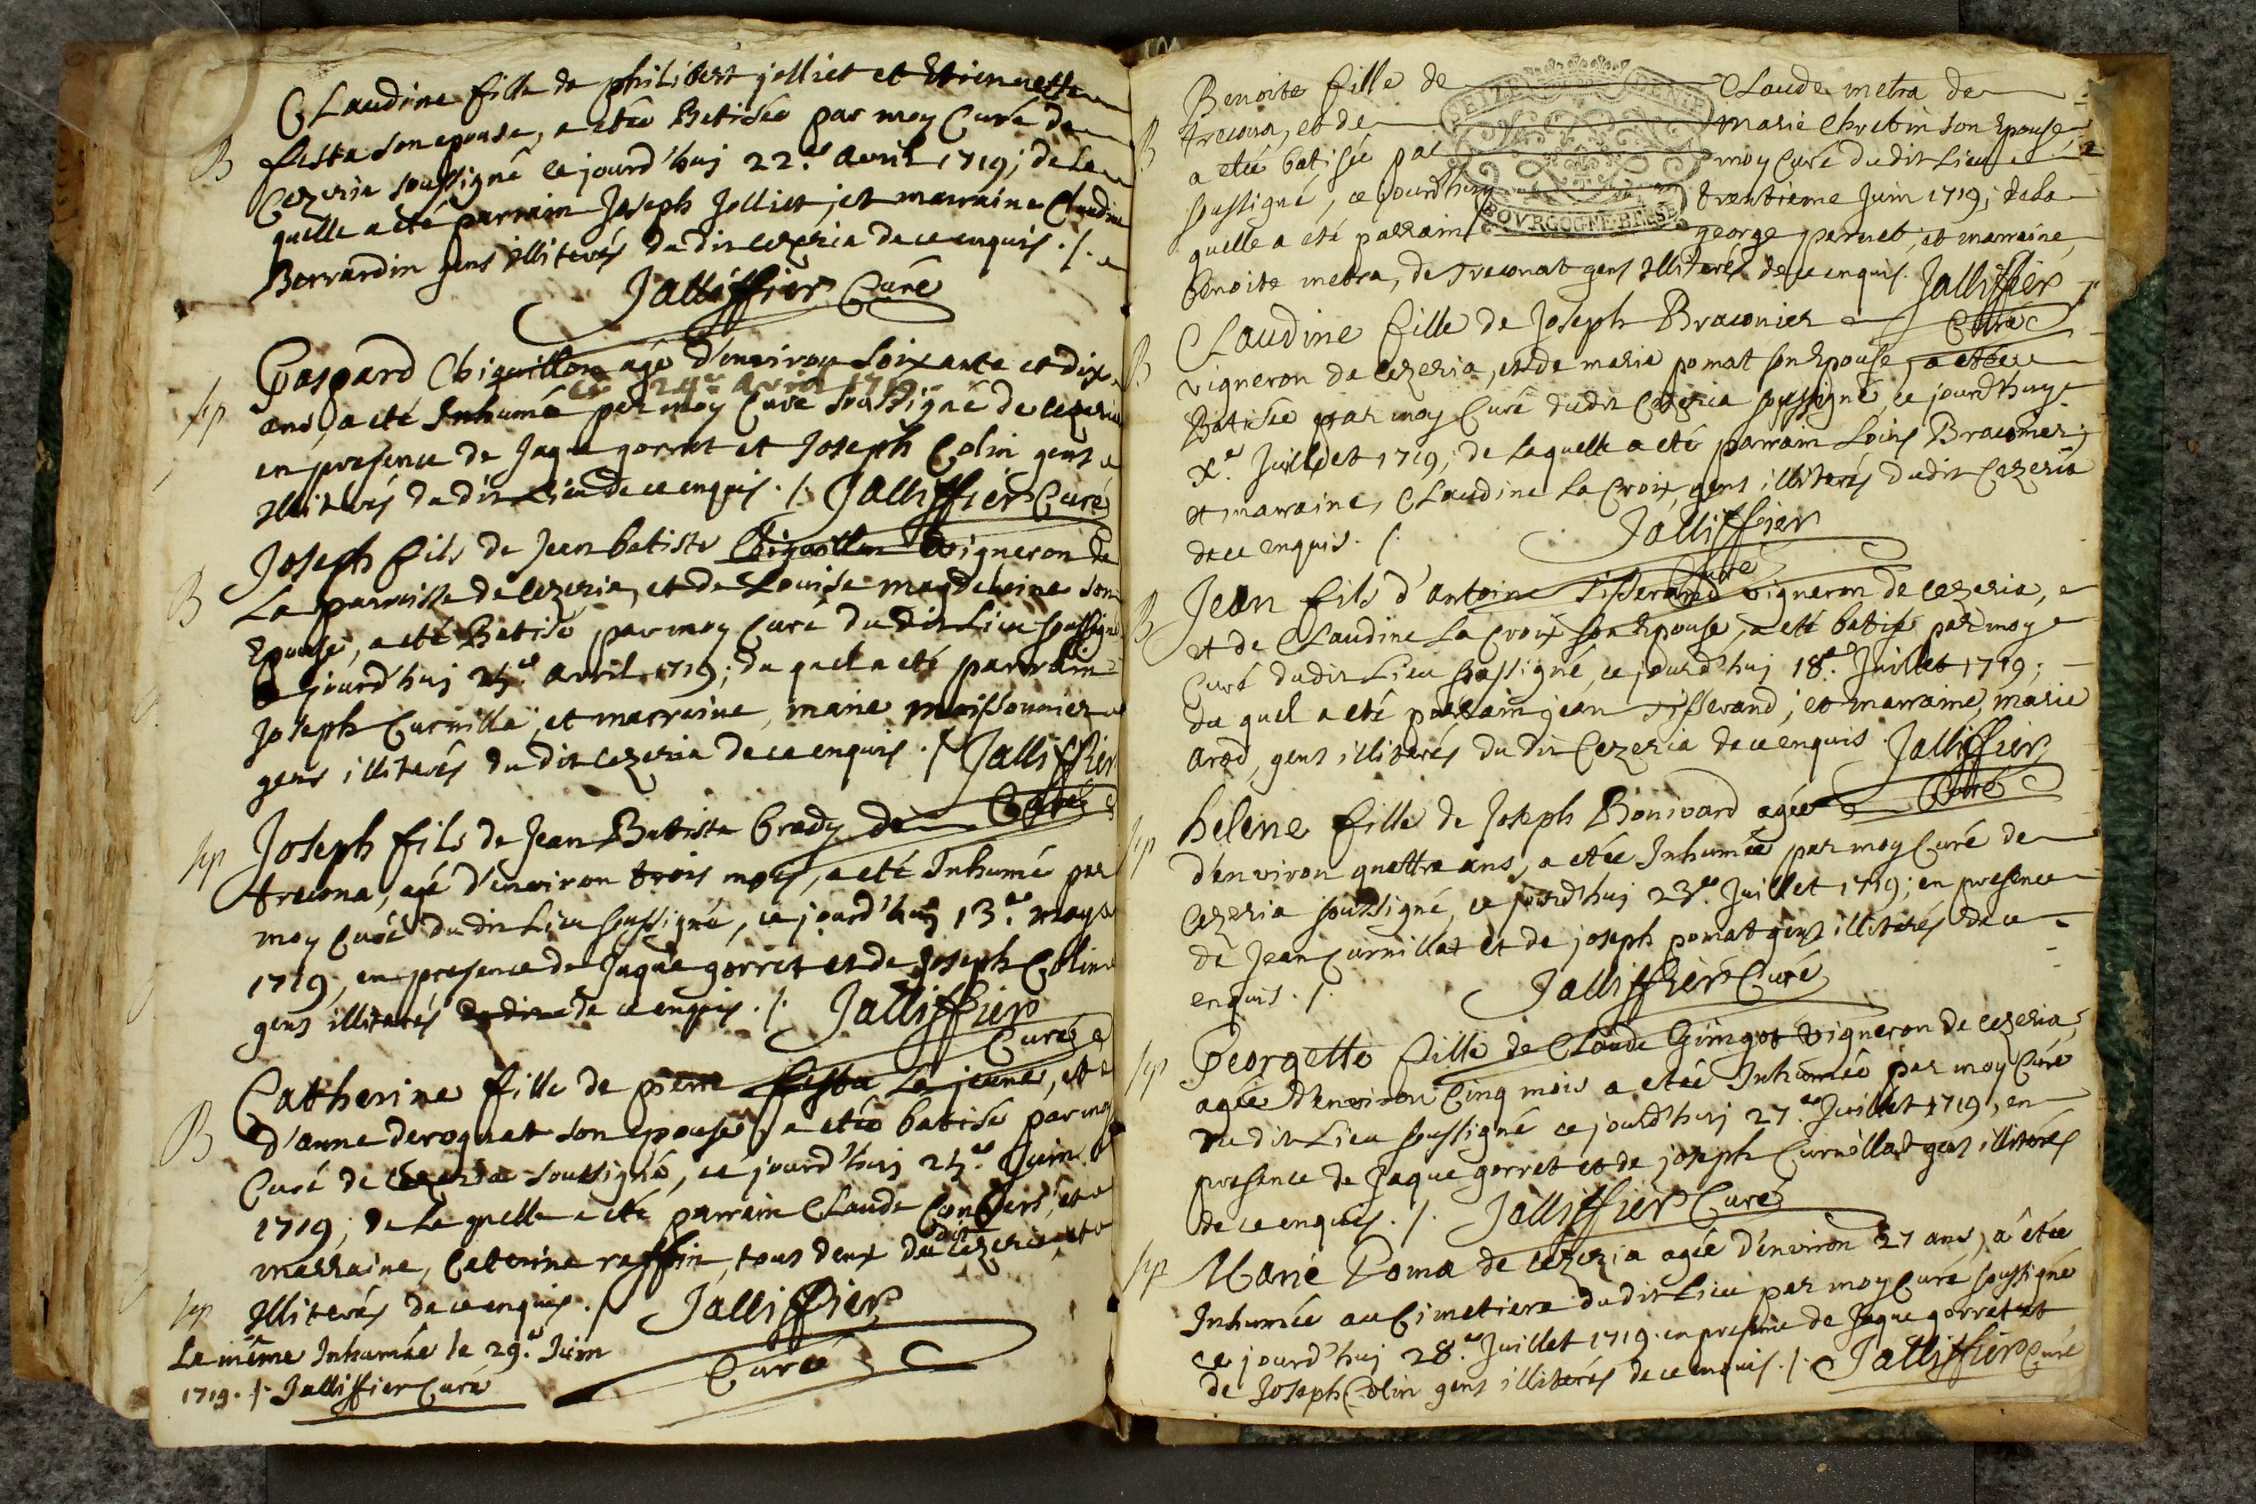 Claudine fille de philibert jolliet et Etiennette
festa son epouse, a etée Batisée par moy Curé de
B
Cezeria soussigné ce jourd'huj 22.e Avril 1719; de la
quelle a été parrain Joseph Jolliet, et marraine Claudine
Bernardin gens illiterés du dit cezeria de ce enquis ./.
Jalliffier Curé
Gaspard Chiguillon agé d'environ soixante et dix
ce 24e avril 1719
sep
ans, a eté Inhumé par moy Curé soussigné de cezeria
en presence de Jaque gorret et Joseph Colin gens
illiterés du dit Lieu de ce enquis ./. Jalliffier Curé
Joseph fils de Jean batiste Chiguillon Vigneron de
B
La parroisse de Cezeria, et de Louise magdeleine son
Epouse, a eté Batisé par moy Curé du dit Lieu soussigné
ce jourd'huj 25.e Avril 1719; du quel a eté parrain
Joseph Curnilla, et marraine, marie moissonnier
gens illiterés du dit cezeria de ce enquis ./. Jalliffier
Curé
sep
Joseph fils de Jean Batiste brady de
trecona, agé d'environ trois mois, a eté Inhumé par
moy Curé du dit Lieu soussigné, ce jourd'huj 13.e may
1719, en presence de Jaque gorret et de Joseph Colin
gens illiterés du dit de ce enquis ./. Jalliffier
Curé
Catherine fille de pierre festa Le jeune, et
B
d'anne deroguat son epouse, a etée batisée par moy
Curé de Cezeria soussigné, ce jourd'huj 25.e Juin
1719; de La quelle a eté parrain Claude Convers, et
marraine, Caterine raffin, tous deux du dit Cezeria, et
sep
Illiterés de ce enquis ./. Jalliffier
Curé
La même Inhumée le 29.e Juin
1719 ./. Jalliffier Curé
Benoite fille de Claude metra de
B
trecona, et de marie Chretin son Epouse
a etée batisée par moy Curé du dit Lieu
soussigné, ce jourd'huy trentieme Juin 1719; de la
quelle a eté parrain george parnet, et marraine,
benoite metra, de treconat gens Illiterés de ce enquis. Jalliffier
Curé
BOVRGOGNE BRESSE
Claudine fille de Joseph Braconier
B
vigneron de Cezeria, et de marie pomat son Epouse, a etée
Batisée par moy Curé du dit Cezeria soussigné, ce jourd'huy
X.e Juillet 1719; de laquelle a eté parrain Loüis Braconier,
et marraine, Claudine La Croix, gens illiterés du dit Cezeria
de ce enquis ./. Jalliffier
Curé
Jean fils d'antoine Tisserand vigneron de cezeria,
B
et de Claudine La Croix son Epouse, a eté batisé par moy
Curé du dit Lieu soussigné, ce jourd'huj 18.e Juillet 1719;
du quel a eté parrain jean tisserand; et marraine, marie
arod, gens illiterés du dit Cezeria de ce enquis Jalliffier
Curé
helene fille de Joseph Bonivard agée
sep
d'environ quattre ans, a etée Inhumée par moy Curé de
Cezeria soussigné, ce jourd'huj 23.e Juillet 1719; en presence
de Jean Curnillat et de joseph pomat gens illiterés de ce
enquis ./. Jalliffier Curé
Georgette fille de Claude Gringot Vigneron de cezeria,
sep
agée d'environ Cinq mois a etée Inhumée par moy Curé
du dit Lieu soussigné ce jourd'huj 27.e Juillet 1719, en
presence de Jaque gorret et de joseph Curnillat gens illiterés
de ce enquis ./. Jalliffier Curé
sep
Marie Poma de cezeria agée d'environ 27 ans, a étée
Inhumée au Cimetiere du dit Lieu par moy Curé soussigné
ce jourd'huj 28.e Juillet 1719. en presence de Jaque gorret et
de Joseph Colin gens illiterés de ce enquis ./. Jalliffier Curé